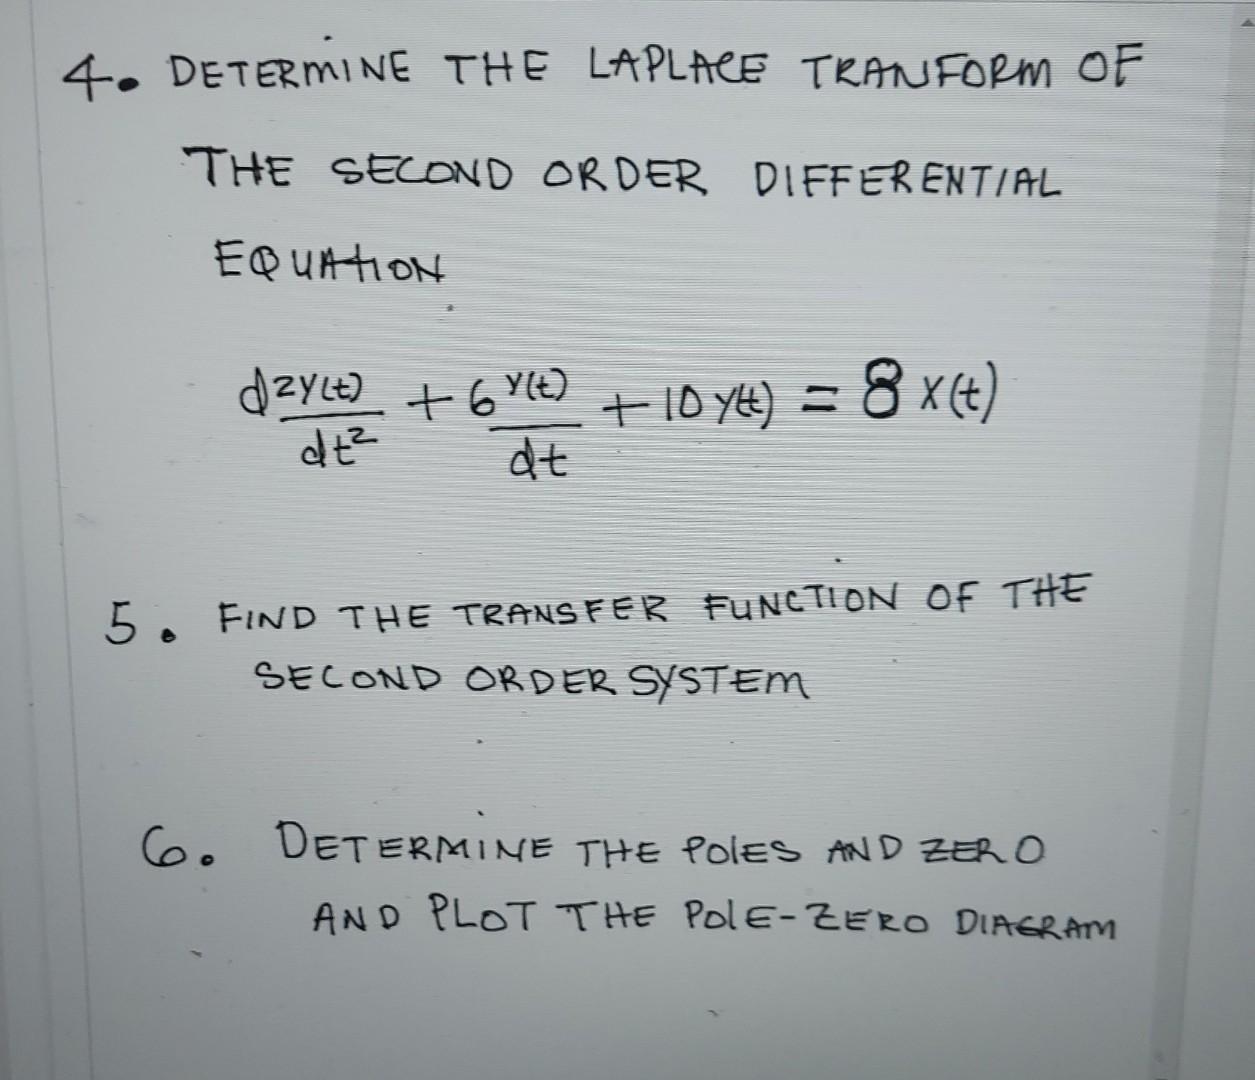 4. DETERMINE THE LAPLACE TRANFORM OF
THE SECOND ORDER DIFFERENTIAL
EQUATION
d2y(t)/dt² + 6 y(t)/dt + 10 y(t) = 8 x(t)
5. FIND THE TRANSFER FUNCTION OF THE
SECOND ORDER SYSTEM
6. DETERMINE THE POLES AND ZERO
AND PLOT THE POLE-ZERO DIAGRAM